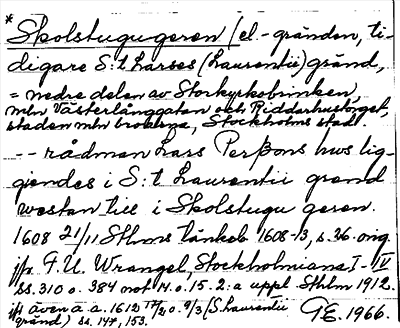 * Skolstugu geren (el. -gränden, ti-
digare S:t Larses (Laurentii) gränd,
= nedre delen av Storkyrkobrinken,
mln Västerlånggatan och Riddarhustorget,
staden mln broarna, Stockholms stad.
-- rådman Lars Perßons hus lig-
giendes i S:t Laurentii grend
westan till i Skolstugu geren.
1608 21/11 Sthlms tänkeb 1608-13, s. 36. orig.
jfr F.U. Wrangel, Stockholmiana I-IV
ss. 310 o. 384 not 14. o. 15. 2:a uppl Sthlm 1912.
jfr även a.a. 1612 17/2 o. 9/3 (S. Laurentii
gränd) ss. 147, 153. GE. 1966.